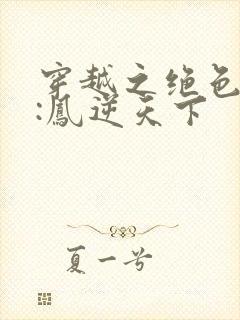 穿越之绝色
:凤逆天下
夏一号